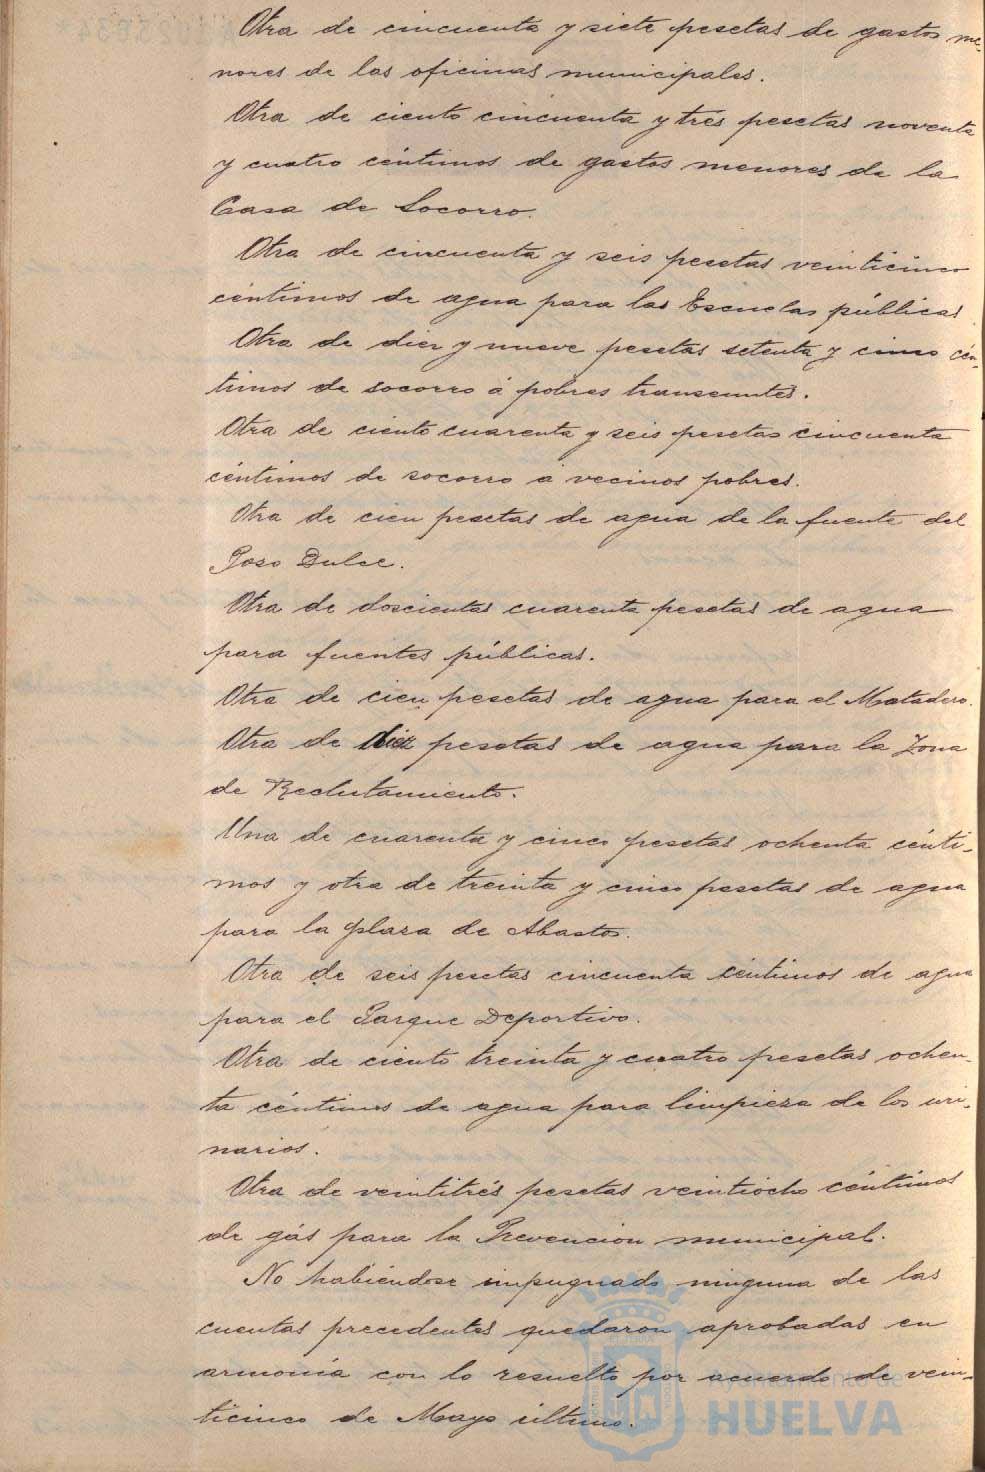 Otra de cincuenta y siete pesetas de gastos me-
nores de las oficinas municipales.
Otra de ciento cincuenta y trés pesetas noventa
y cuatro céntimos de gastos menores de la
Casa de Socorro.
Otra de cincuenta y seis pesetas veinticinco
céntimos de agua para las Escuelas públicas
Otra de diez y nueve pesetas setenta y cinco cén-
timos de socorro á pobres transeuntes.
Otra de ciento cuarenta y seis pesetas cincuenta
céntimos de socorro á vecinos pobres.
Otra de cien pesetas de agua de la fuente del
Poso Dulce.
Otra de doscientas cuarenta pesetas de agua
para fuentes públicas.
Otra de cien pesetas de agua para el Matadero.
Otra de diez pesetas de agua para la Zona
de Reclutamiento.
Una de cuarenta y cinco pesetas ochenta cénti-
mos y otra de treinta y cinco pesetas de agua
para la plaza de Abastos.
Otra de seis pesetas cincuenta céntimos de agua
para el Parque Deportivo.
Otra de ciento treinta y cuatro pesetas ochen-
ta céntimos de agua para limpieza de los uri-
narios.
Otra de veintitrés pesetas veintiocho céntimos
de gás para la Prevención municipal.
No habiéndose impugnado ninguna de las
cuentas precedentes quedaron aprobadas en
armonía con lo resuelto por acuerdo de vein-
ticinco de Mayo último.
Ayuntamiento de
HUELVA